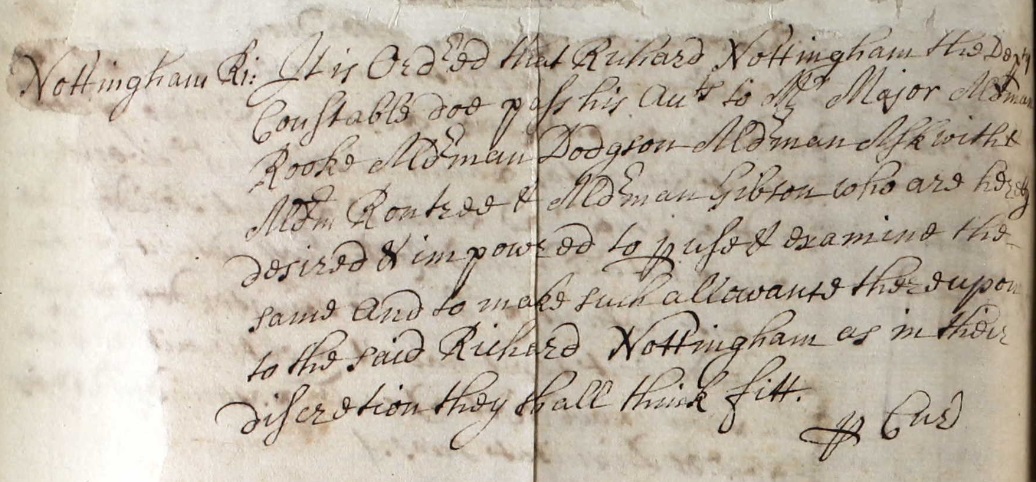 Nottingham Ri: It is Ord'ed that Richard Nottingham the Dep'y
Constable doe pass his Accts to Mr Major Aldman
Rooke Ald'man Dodgson Ald'man Askwith &
Ald'm Rontree & Ald'man Gibson who are hereby
desired & impowred to p'use & examine the
same And to make such allowance thereupon
to the said Richard Nottingham as in their
discretion they shall think fitt.
p Cur'